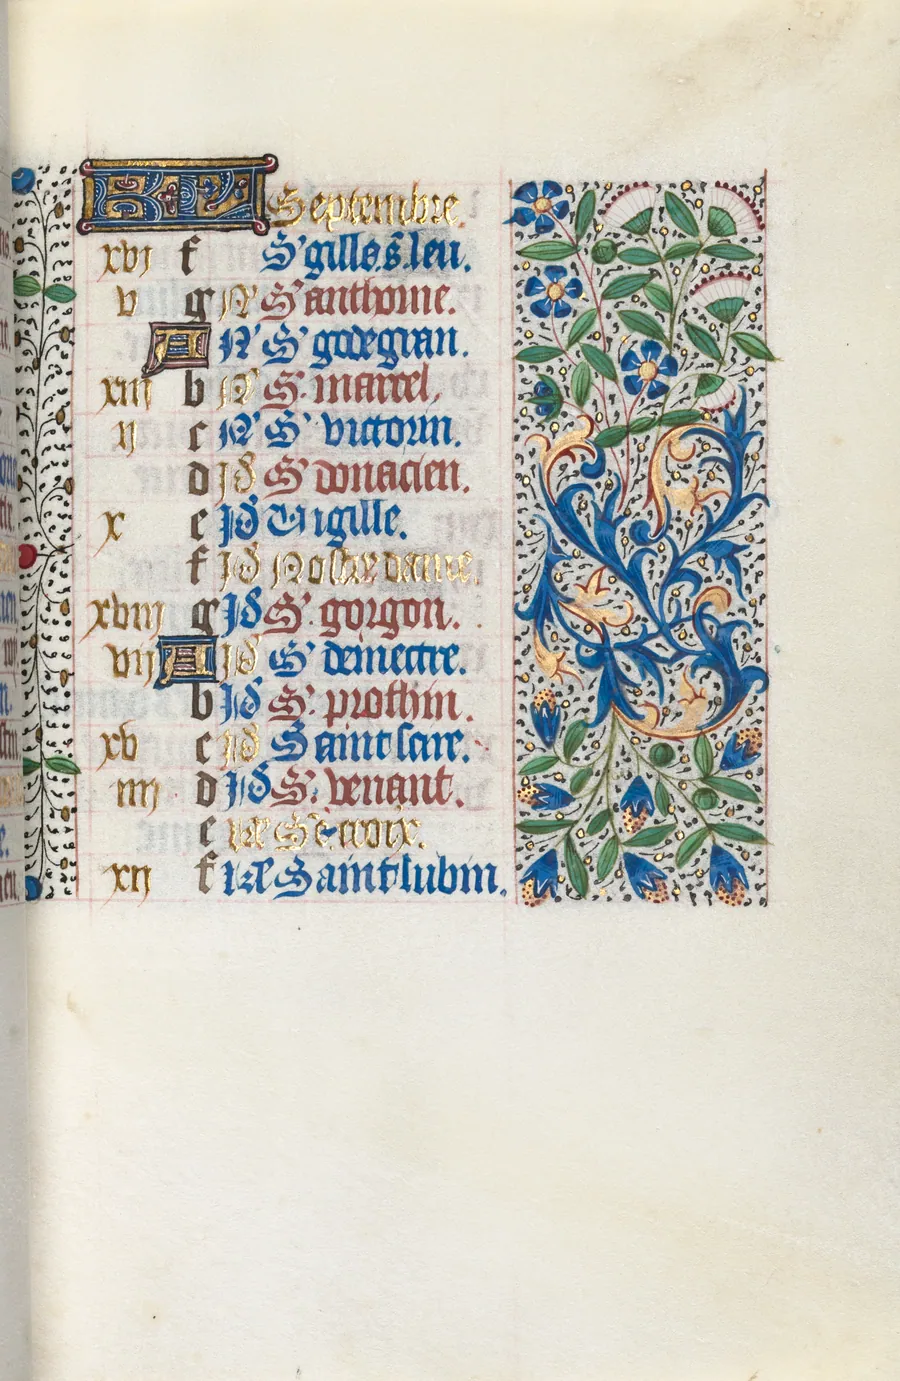 KL Septembre.
xvj f S' gille. s. leu.
v g N' S' anthoine.
A N' S' godegran.
xiij b N' S' marcel.
ij c N' S' victorin.
d jd S' donacien.
x e jd Vigille.
f jd Nostre dame.
xviij g jd S' gorgon.
vij A jd S' demectre.
b jd S' prothin.
xv c jd Saint sire.
iiij d jd S' venant.
e kl Se croix.
xij f kl Saint lubin.